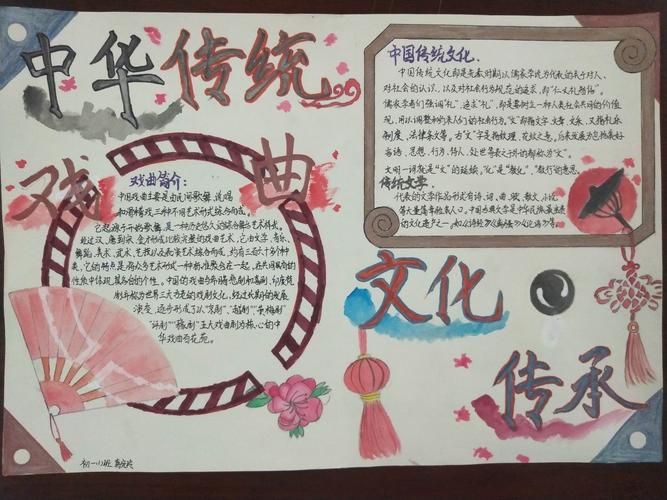 中华传统
戏曲
戏曲简介:
中国戏曲主要是由民间歌舞、说唱
和滑稽戏三种不同艺术形式综合而成。
它起源于原始歌舞,是一种历史悠久的综合舞台艺术样式。
经过汉、唐到宋、金才形成比较完整的戏曲艺术,它由文学、音乐、
舞蹈、美术、武术、杂技以及表演艺术综合而成,约有三百六十多个种
类。它的特点是将众多艺术形式以一种标准聚合在一起,在共同具有的
性质中体现其各自的个性。中国的戏曲与希腊悲剧和喜剧、印度梵
剧并称为世界三大古老的戏剧文化,经过长期的发展
演变,逐步形成了以“京剧”“越剧”“黄梅剧”
“评剧”“豫剧”五大戏曲剧种为核心的中
华戏曲百花苑。
中国传统文化.
中国传统文化,即是先秦时期以儒家学说为代表的表于对人、
对社会的认识,以及对社会行为规范的追求,即“仁义礼智信”。
儒家学者们强调“礼”,追求“礼”,即是要树立一种人类社会共同的价值
观,用以调整和约束人们的社会行为。“文”即指文字、文章、文采,又指礼乐
制度、法律条文等。古“文”字是指纹理、花纹之意。后来发展为包括美好
言语、思想、行为、待人、处世等表之于外的都称为“文”。
文明一词就是“文”的延续,“化”是“教化”、“教行”的意思。
传统文学
代表的文学作品形式有诗、词、曲、赋、散文、小说
文化
传承
初一(1)班